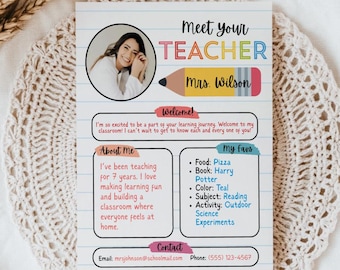 Meet Your
TEACHER
Mrs. Wilson
Welcome!
I'm so excited to be a part of your learning journey. Welcome to my
classroom! I can't wait to get to know each and every one of you!
About Me
I've been teaching
for 7 years. I love
making learning fun
and building a
classroom where
everyone feels at
home.
My Favs
• Food: Pizza
• Book: Harry
Potter
• Color: Teal
• Subject: Reading
• Activity: Outdoor
Science
Experiments
Contact
Email: mrsjohnson@schoolmail.com Phone: (555) 123-4567